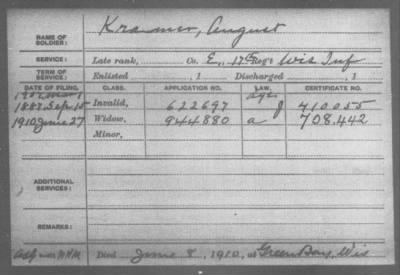 NAME OF SOLDIER: Kramer, August
SERVICE: Late rank, Co. E, 17 Reg't Wis Inf
TERM OF SERVICE: Enlisted , 1 Discharged , 1
DATE OF FILING. CLASS. APPLICATION NO. LAW. CERTIFICATE NO.
age
1887 Sep 15 Invalid, 622697 J 410055
1910 June 27 Widow, 944880 a 708.442
Minor,
ADDITIONAL SERVICES:
REMARKS:
Died June 8, 1910, at Green Bay, Wis